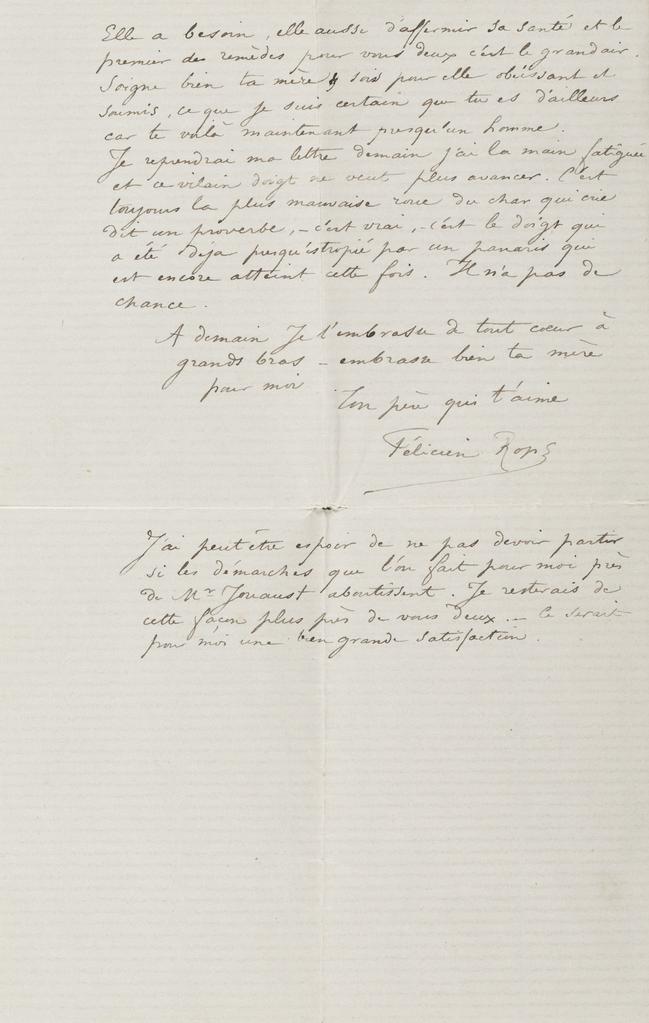 Elle a besoin, elle aussi d'affermir sa santé et le
premier des remèdes pour vous deux c'est le grand air.
Soigne bien ta mère & sois pour elle obéissant et
soumis, ce que je suis certain que tu es d'ailleurs
car te voilà maintenant presqu'un homme.
Je reprendrai ma lettre demain j'ai la main fatiguée
et ce vilain doigt ne veut plus avancer. C'est
toujours la plus mauvaise roue du char qui crie
dit un proverbe, – c'est vrai, – c'est le doigt qui
a été déja presqu'estropié par un panaris qui
est encore atteint cette fois. Il n'a pas de
chance.
A demain Je t'embrasse de tout coeur à
grands bras – embrasse bien ta mère
pour moi
Ton père qui t'aime
Félicien Rops
J'ai peut être espoir de ne pas devoir partir
si les démarches que l'on fait pour moi près
de Mr Jouaust aboutissent. Je resterais de
cette façon plus près de vous deux. – Ce serait
pour moi une bien grande satisfaction.